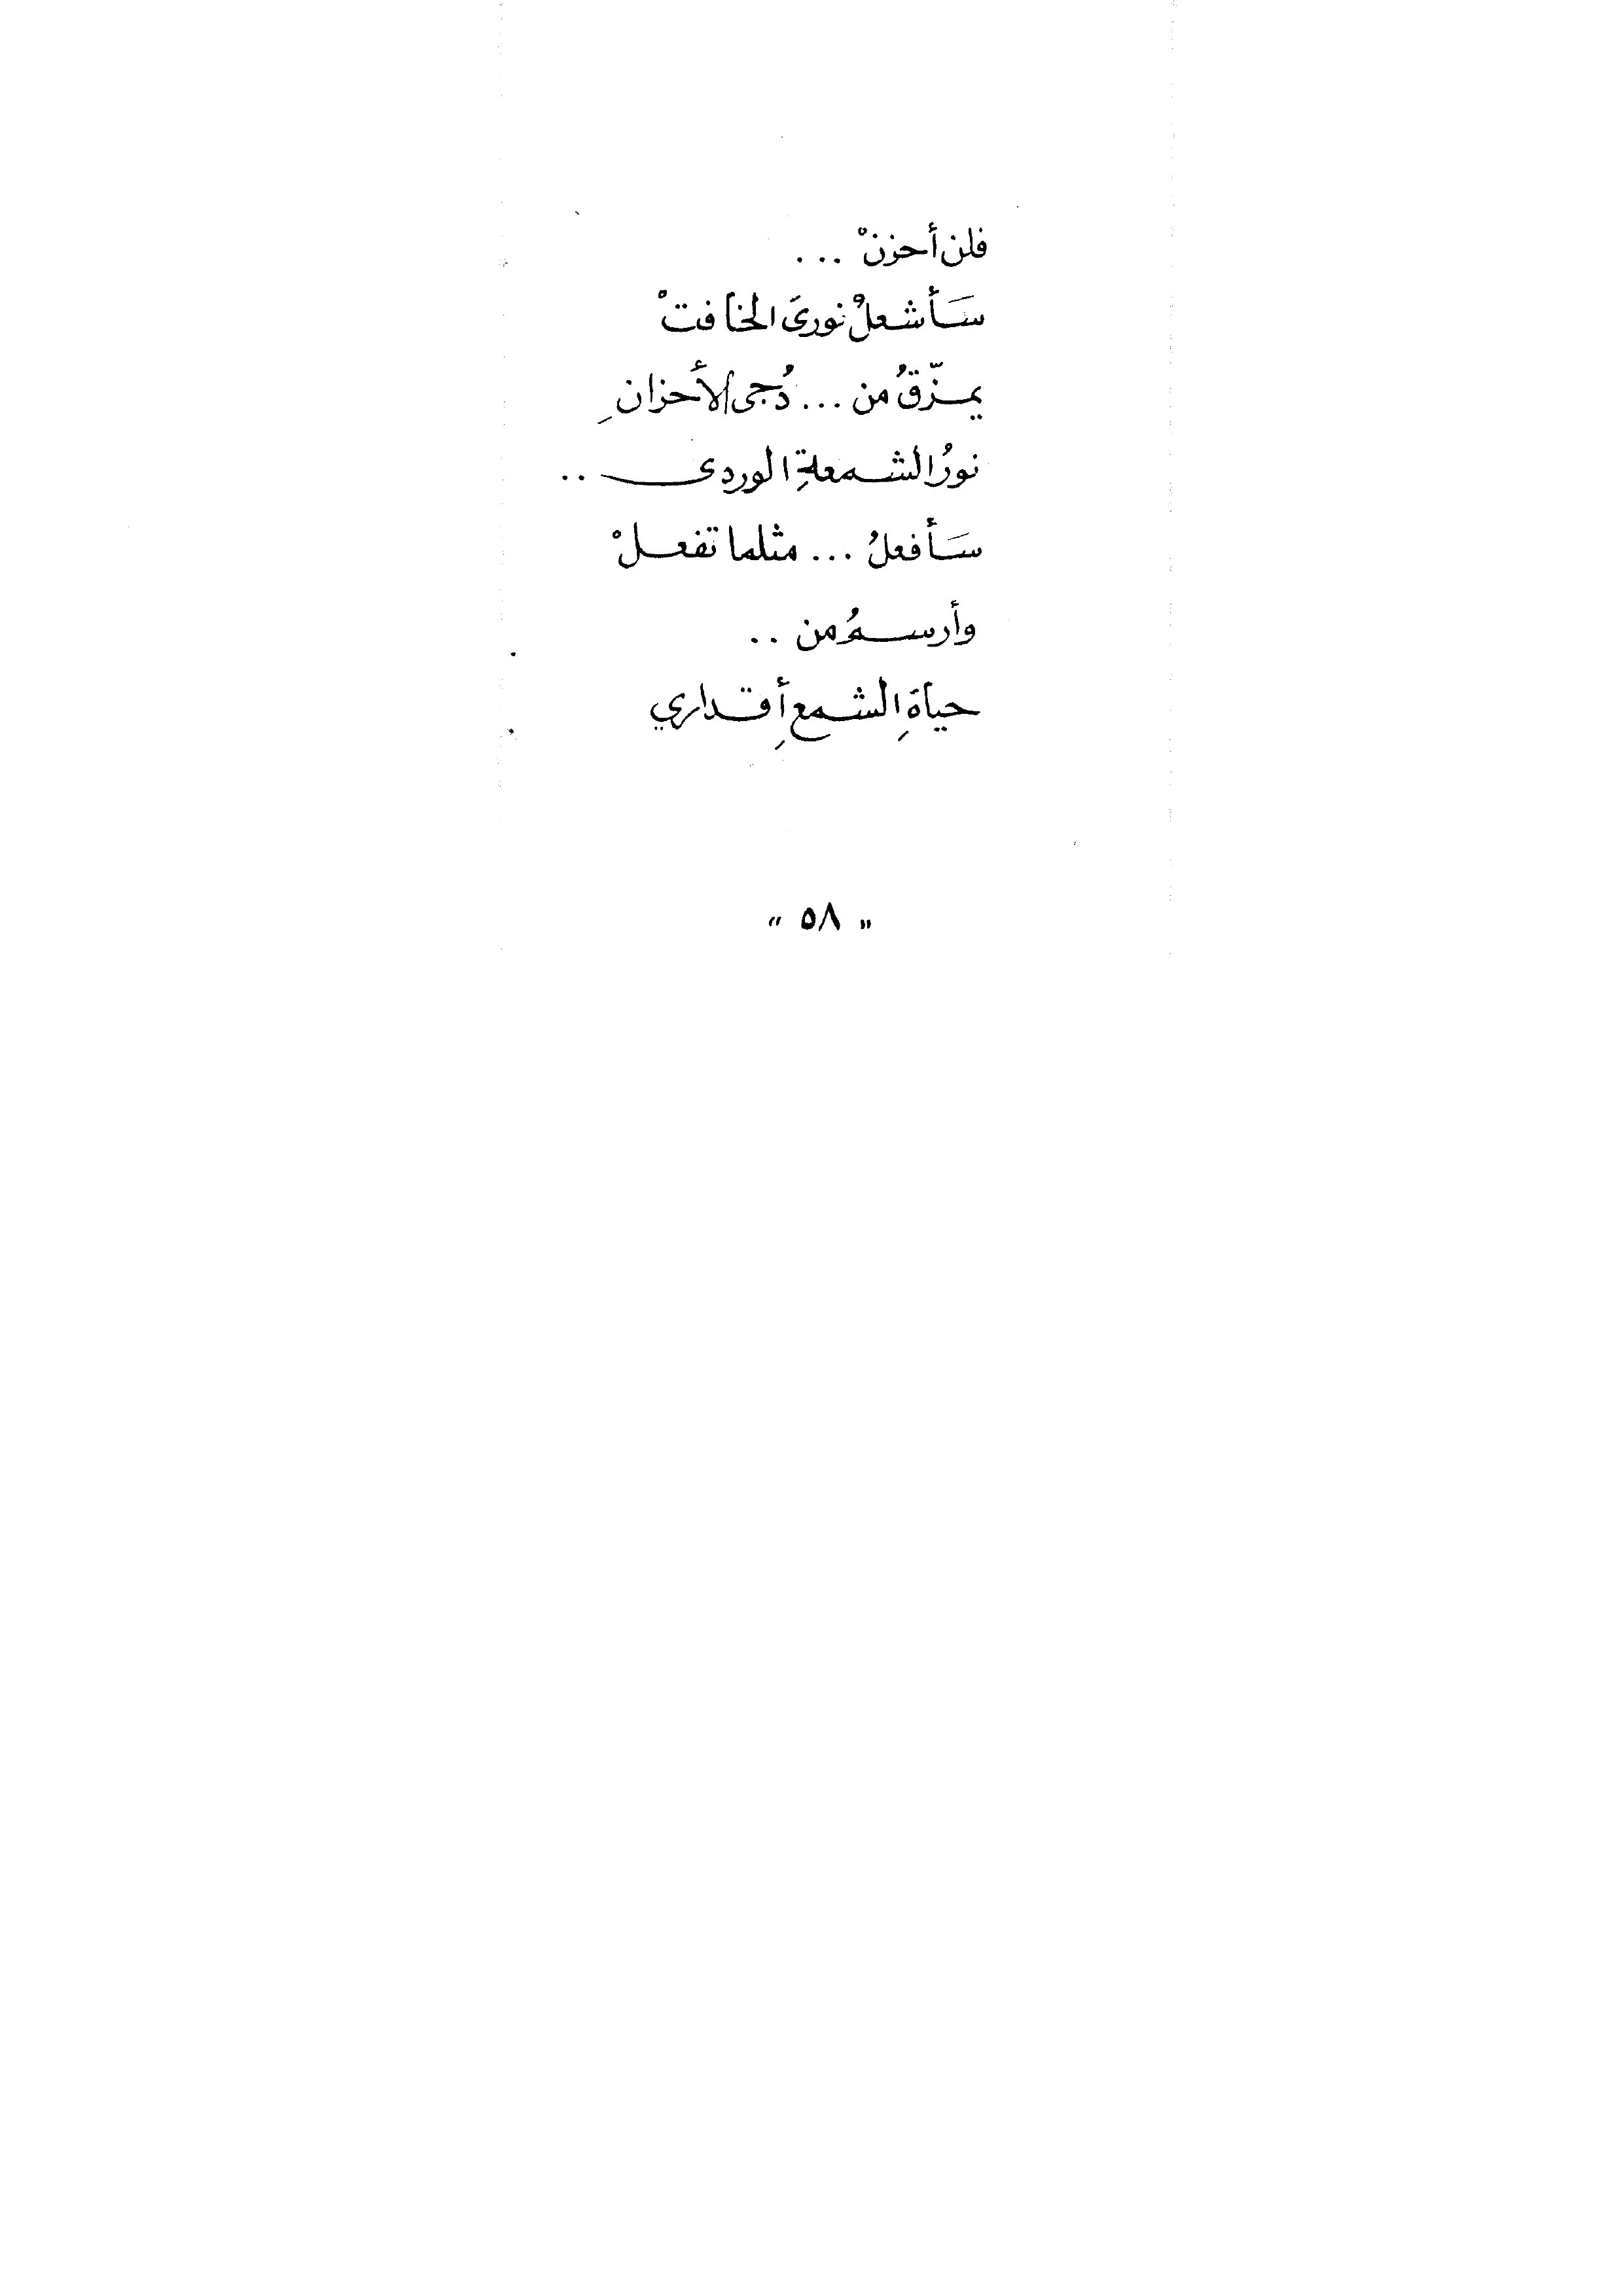 فلن أحزنْ ...
سَأشعلُ نوريَ الخافتْ
يمزّقُ من ... دُجى الأحزانِ
نورُ الشمعةِ الوردى ..
سَأفعلُ ... مثلما تفعلْ
وأرسمُ من ..
حياةِ الشمعِ أقداري
" ٥٨ "